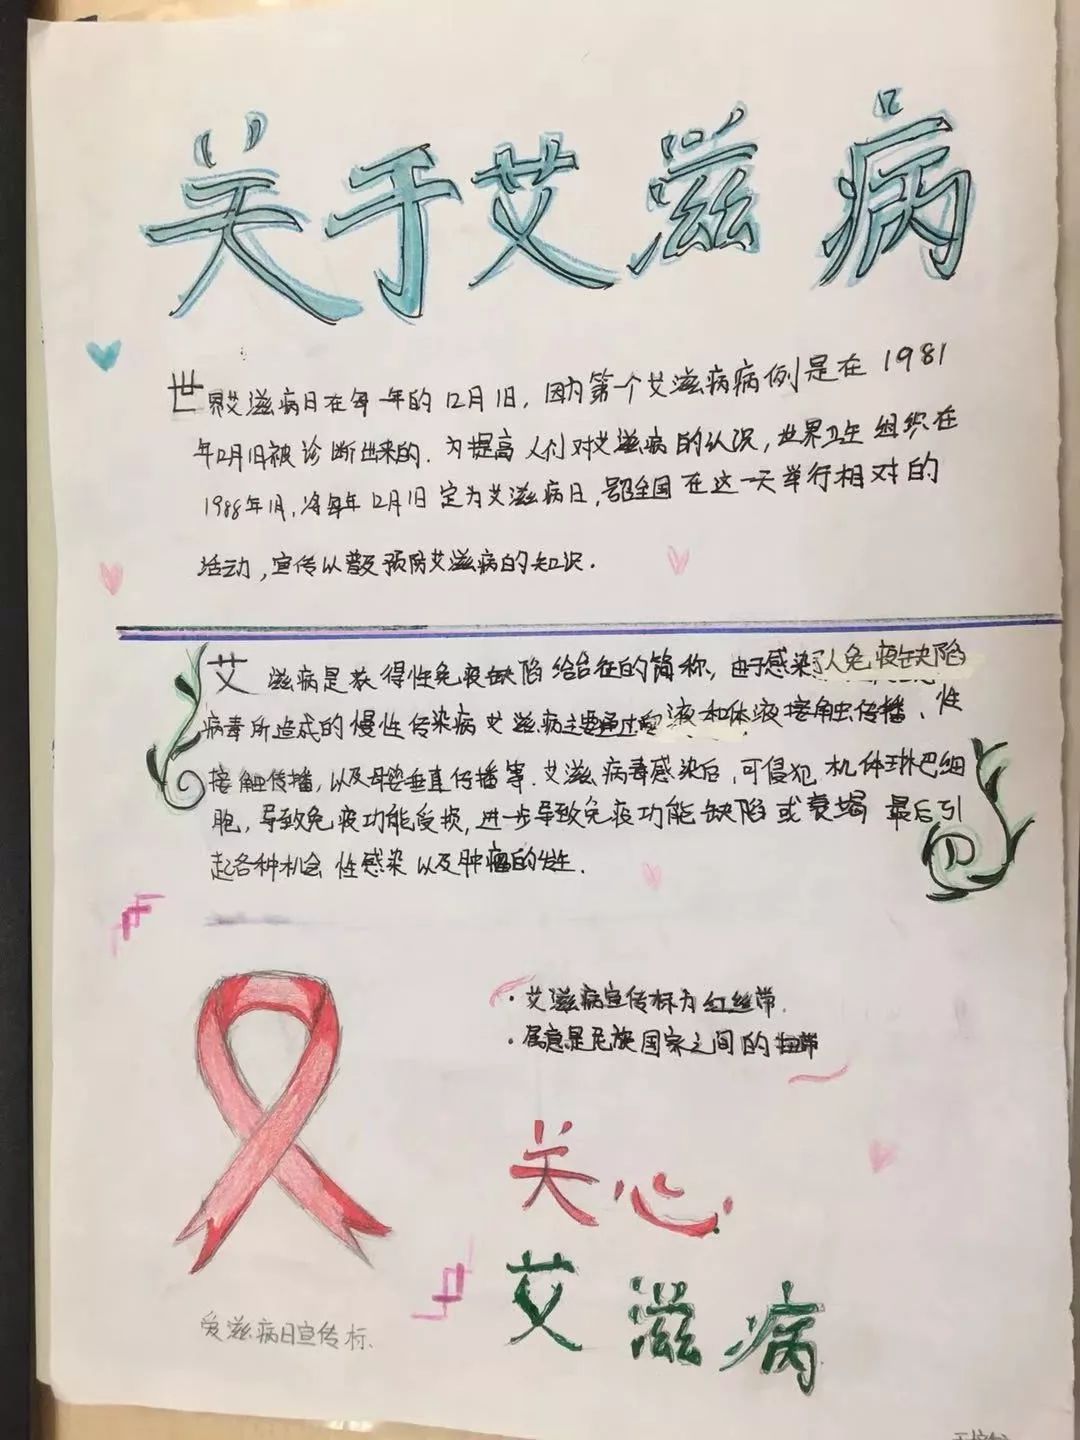 关于艾滋病
世界艾滋病日在每一年的12月1日，因为第一个艾滋病病例是在1981
年12月1日被诊断出来的．为提高人们对艾滋病的认识，世界卫生组织在
1988年1月，将每年12月1日定为艾滋病日，号召全国在这一天举行相对的
活动，宣传以普及预防艾滋病的知识．
艾滋病是获得性免疫缺陷综合征的简称，由于感染了人免疫缺陷
病毒所造成的慢性传染病 艾滋病主要通过血液和体液接触传播、性
接触传播，以及母婴垂直传播等．艾滋病毒感染后，可侵犯机体淋巴细
胞，导致免疫功能受损，进一步导致免疫功能缺陷或衰竭 最后引
起各种机会性感染以及肿瘤的发生．
·艾滋病宣传标为红丝带．
·寓意是民族国家之间的纽带
关心
艾滋病
爱滋病日宣传标．